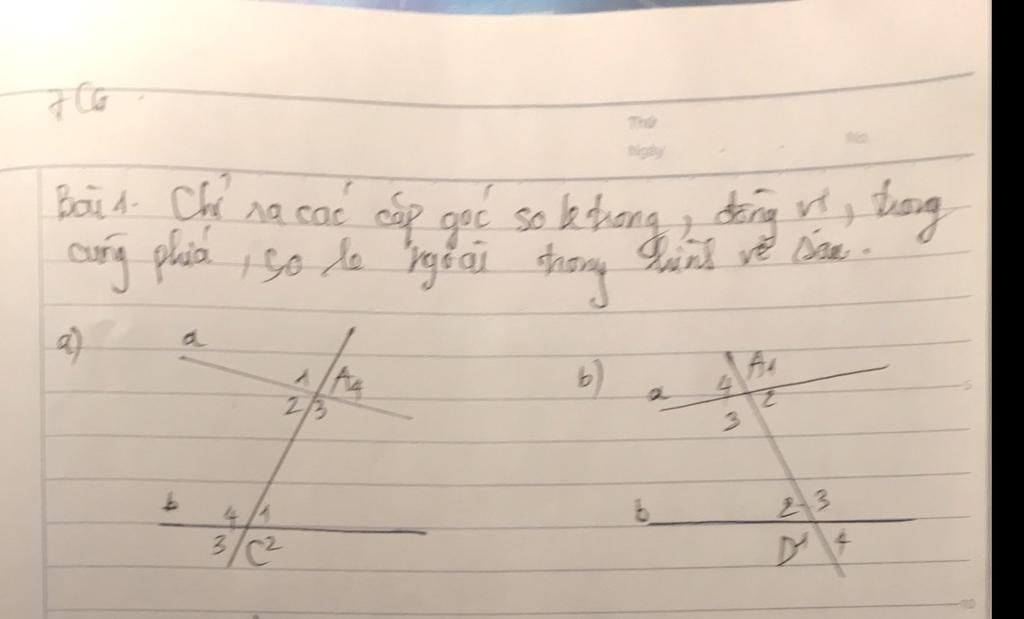 7C6
Thứ
Ngày
No.
Bài 1. Chỉ ra các cặp góc so le trong, đồng vị, trong
cùng phía, so le ngoài trong hình vẽ sau.
a)
a
1 A 4
2 3
b
4 1
3 C 2
b)
a
4 A 1
3 2
b
2 3
D 1 4
5
10